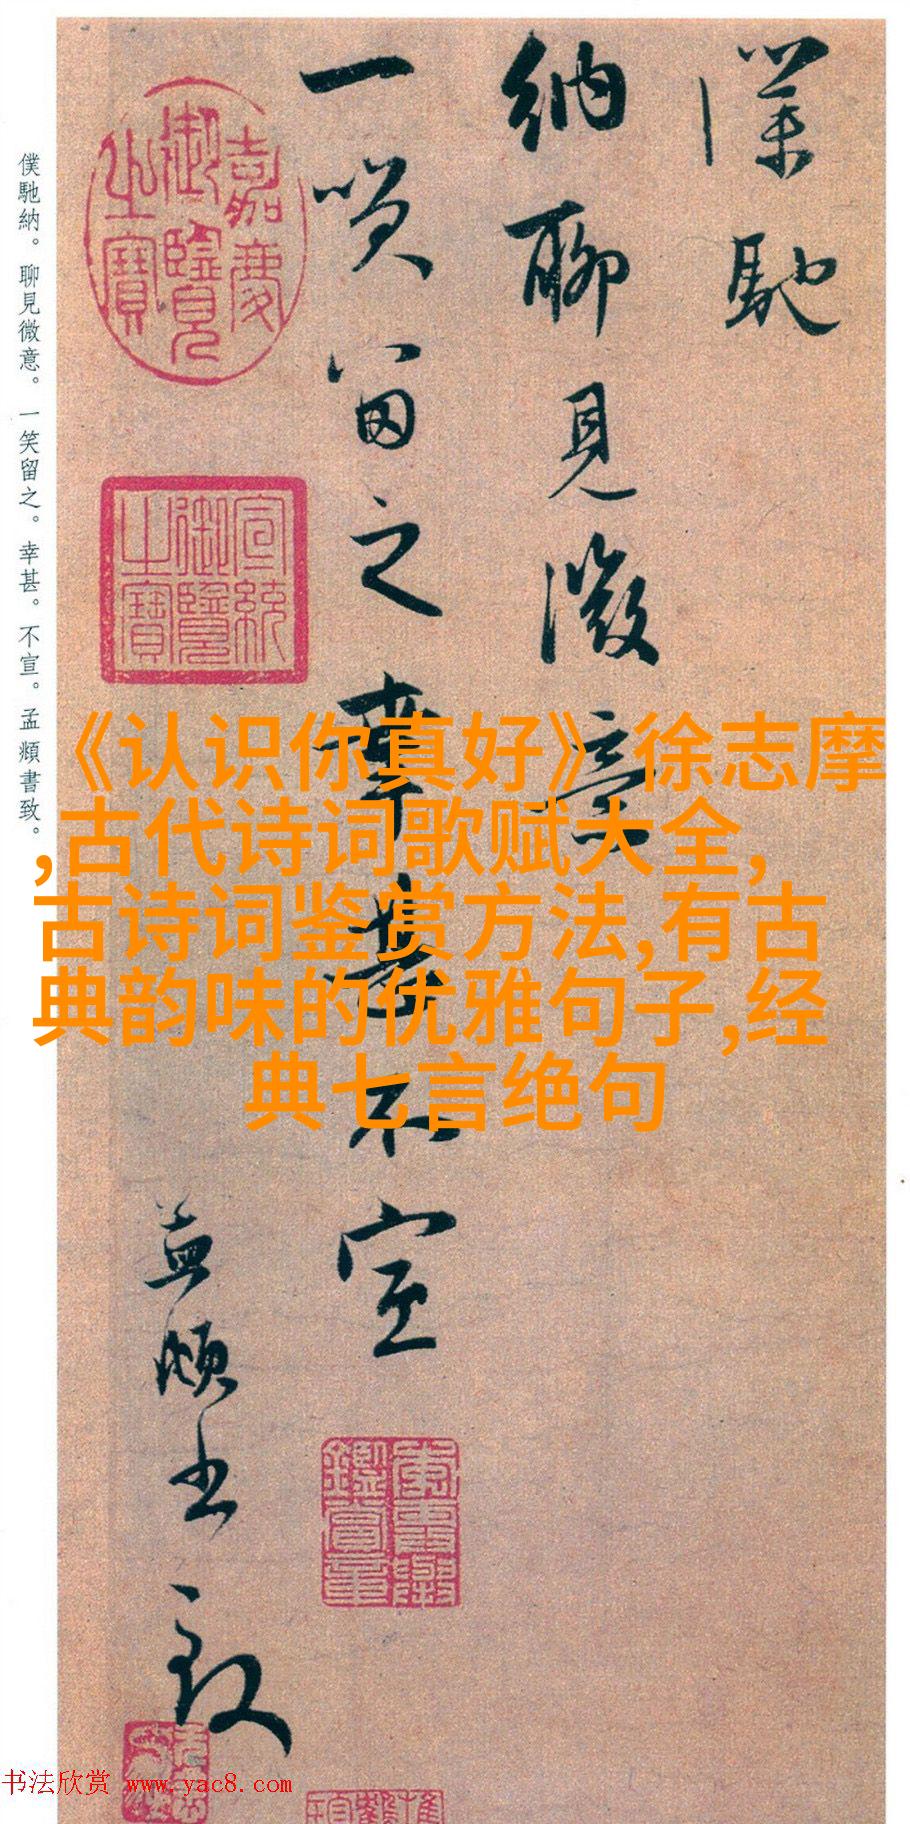 僕馳
納聊見微意
一笑留之幸甚不宣
孟頫書致
僕馳納。聊見微意。一笑留之。幸甚。不宣。孟頫書致。
嘉慶御覽之寶
宣統御覽之寶
《认识你真好》徐志摩
,古代诗词歌赋大全,
古诗词鉴赏方法,有古
典韵味的优雅句子,经
典七言绝句
书法欣赏 www.yac8.com